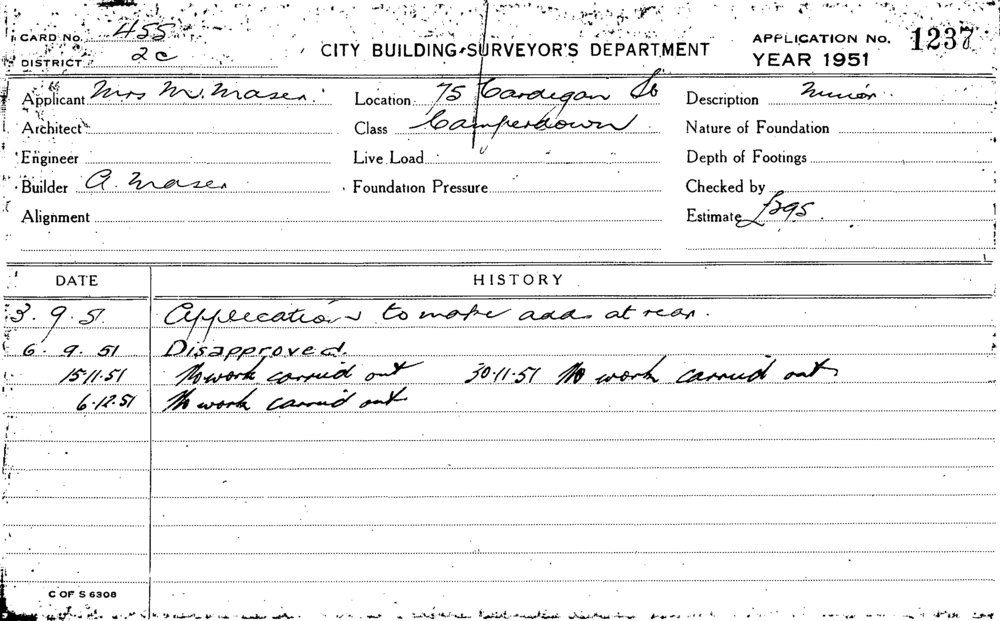 CARD No. 455
DISTRICT 2C
CITY BUILDING SURVEYOR'S DEPARTMENT
APPLICATION No. 1237
YEAR 1951
Applicant Mrs M. Maser.
Location 75 Cardigan St
Description Minor.
Architect
Class Camperdown
Nature of Foundation
Engineer
Live Load
Depth of Footings
Builder A. Maser
Foundation Pressure
Checked by
Alignment
Estimate £295.
DATE HISTORY
3. 9. 51. Application to make adds at rear.
6. 9. 51 Disapproved.
15.11.51 No work carried out 30.11.51 No work carried out
6.12.51 No work carried out
C OF S 6308